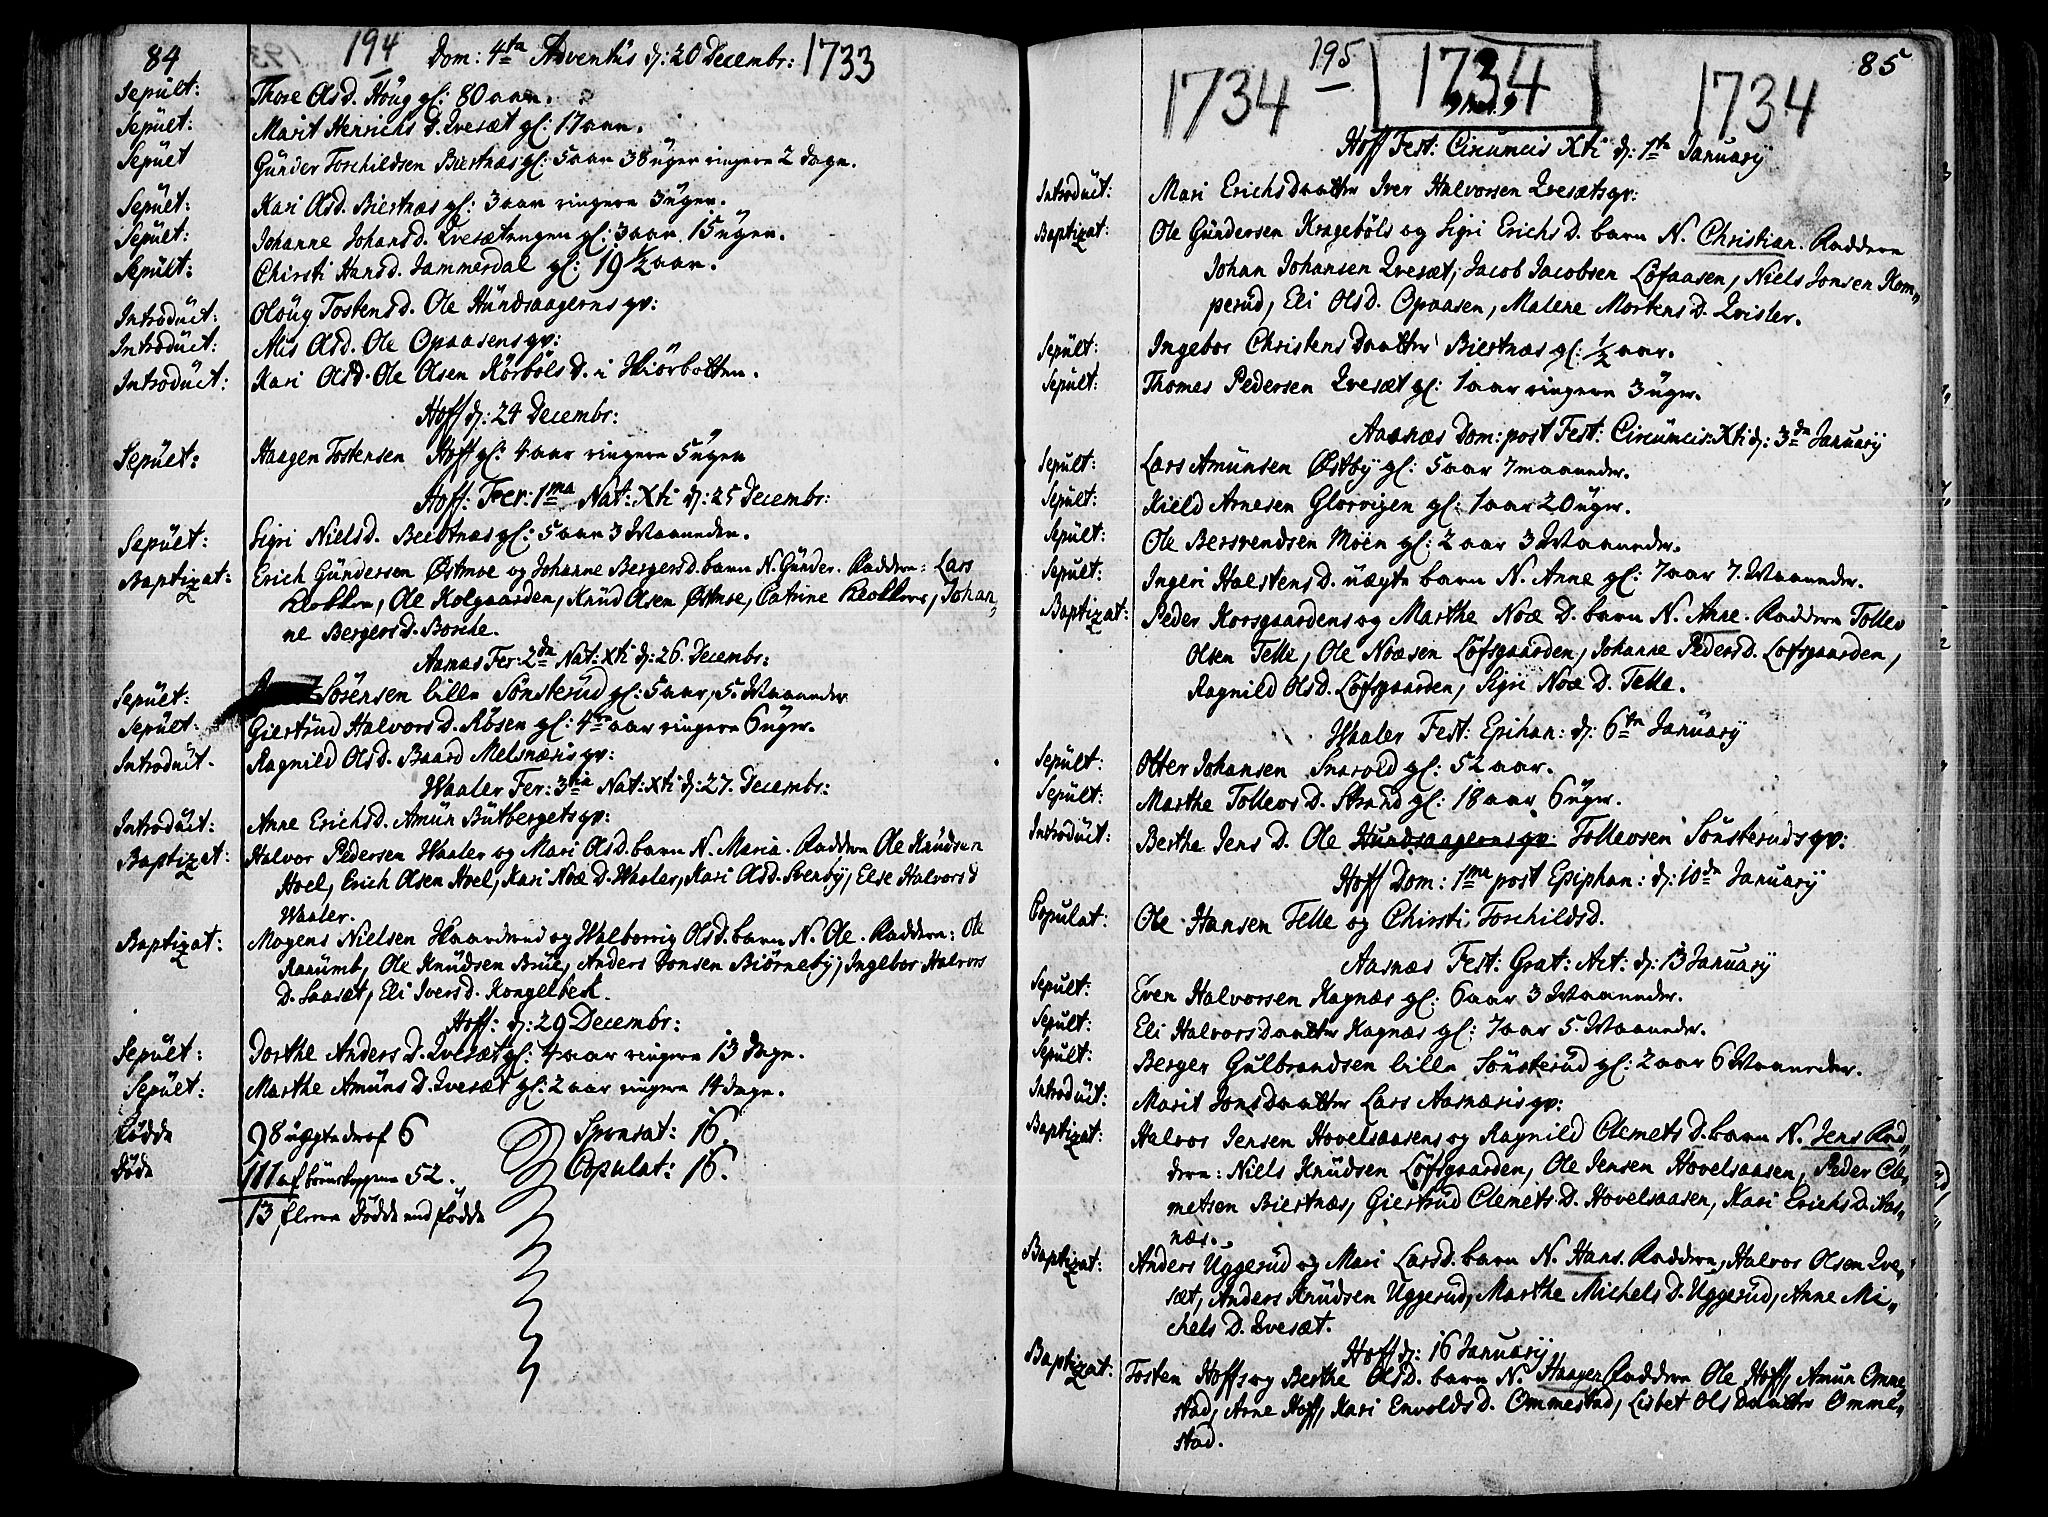 84
194
Dom: 4ta Adventûs d: 20 Decembr: 1733
Sepult: Thore Olsd. Houg gl: 80 aar.
Sepult: Marit Henrichs D. Qvesæt gl: 17 aar.
Sepult Gunder Torchildsen Biertnæs gl: 5 aar 38 uger ringere 2 dage.
Sepult: Kari Olsd. Biertnæs gl: 3 aar ringere 3 uger.
Sepult: Johanne Johansd. Qvesætengen gl: 3 aar 15 uger.
Sepult: Chirsti Hansd. Jammerdal gl: 19 1/2 aar.
Introduct: Oloug Tostensd. Ole Hundsaagerns qv:
Introduct: Alis Olsd. Ole Opaasens qv:
Introduct: Kari Olsd. Ole Olsen Körböls D. i Skiörbotten.
Hoff d: 24 Decembr:
Sepult: Haagen Tostensen Hoff gl: 4 aar ringere 5 uger
Hoff: Fer: 1ma Nat: Xti d: 25 Decembr:
Sepult: Sigri Nielsd. Biertnæs gl: 5 aar 3 Maaneder.
Baptizat: Erich Gundersen Østmoe og Johanne Bergersd. barn N. Gunder. Faddere: Lars
Klokker, Ole Kolgaarden, Knud Olsen Østmoe, Catrine Klokkers, Johan-
ne Bergers D. Borche.
Aasnæs Fer: 2da Nat: Xti d: 26. Decembr:
Sepult: Sörensen lille Sönsterud gl: 5 aar, 5. Maaneder
Sepult: Giertrud Halvors D. Rösen gl: 4re aar ringere 6 uger.
Introduct. Ragnild Olsd. Baard Melsnæsis qv:
Waaler Fer: 3tia Nat: Xti d: 27. Decembr:
Introduct: Anne Erichsd. Amun Butbergets qv:
Baptizat: Halvor Pedersen Waaler og Mari Olsd. barn N. Maria. Faddere Ole Knudsen
Hoel, Erich Olsen Hoel, Kari Noæ D. Waaler, Kari Olsd. Svenby, Else Halvorsd
Waaler.
Baptizat: Mogens Nielsen Skaardrud og Walborrig Olsd. barn N. Ole. Faddere: Ole
Ranumb, Ole Knudsen Brue, Anders Jonsen Biörneby, Ingebor Halvors
D. Saasæt, Eli Ivers D. Kongelbech.
Hoff: d: 29 Decembr:
Sepult: Dorthe Anders D. Qvesæt gl: 4 aar ringere 13 dage.
Sepult: Marthe Amuns D. Qvesæt gl: 2 aar ringere 14 dage.
Födde 98 uægte deraf 6 Sponsat: 16.
Döde 111 af börnekopperne 52. Copulat: 16.
13 flere Dödde end födde
85
195
1734 1734 1734
Hoff Fest: Circumcis Xti d: 1ta January
Introduct: Mari Erichsdaatter Iver Halvorsen Qvesæts qv:
Baptizat: Ole Gundersen Krageböls og Sigri Erichs D. barn N. Christian. Faddere
Johan Johansen Qvesæt, Jacob Jacobsen Löfaasen, Niels Jonsen Kom-
perud, Eli Ols D. Opaasen, Malene Mortens D. Qvisler.
Sepult: Ingebor Christens Daatter Biertnæs gl: 1/2 aar.
Sepult: Thomes Pedersen Qvesæt gl: 1 aar ringere 3 uger.
Aasnæs Dom: post Fest: Circumcis: Xti d: 3da January
Sepult: Lars Amunsen Østby gl: 5 aar 7 maaneder.
Sepult: Kield Arnesen Glorvigen gl: 1 aar 20 uger.
Sepult: Ole Bersvendsen Möen gl: 2 aar 3 Maaneder.
Sepult: Ingeri Halstens D. uægte barn N. Anne gl: 7 aar 7. Maaneder.
Baptizat: Peder Korsgaardens og Marthe Noæ D. barn N. Anne. Faddere Tollev
Olsen Telle, Ole Noæsen Löfsgaarden, Johanne Pedersd. Lofsgaarden,
Ragnild Olsd. Löfsgaarden, Sigri Noæ D. Telle.
Waaler Fest: Epihan: d: 6ta January
Sepult: Otter Johansen Snarold gl: 52 aar.
Sepult: Marthe Tollevs D. Strand gl: 18 aar 6 uger.
Introduct: Berthe Jens D. Ole Hundsaagerns qv. Tollevsen Sönsteruds qv:
Hoff Dom: 1ma post Epiphan: d: 10da January
Copulat: Ole Hansen Telle og Chirsti Torchildsd.
Aasnæs Fest: Grat: Act: d: 13 January
Sepult: Even Halvorsen Kagnæs gl: 6 aar 3 Maaneder.
Sepult: Eli Halvorsdaatter Kagnæs gl: 7 aar 5. Maaneder.
Sepult: Berger Gulbrandsen lille Sönsterud gl: 2 aar 6 Maaneder.
Introduct: Marit Jonsdaatter Lars Aasnæsis qv:
Baptizat: Halvor Jensen Hovelsaasens og Ragnild Clemets D. barn N. Jens Fad-
dere: Niels Knudsen Löfsgaarden, Ole Jensen Hovelsaasen, Peder Cle-
metsen Biertnæs, Giertrud Clemets D. Hovelsaasen, Kari Erichs D. Aas-
næs.
Baptizat: Anders Uggerud og Mari Larsd. barn N. Hans. Faddere, Halvor Olsen Qve-
sæt, Anders Knudsen Uggerud, Marthe Michels D. Uggerud, Anne Mi-
chels D. Qvesæt.
Hoff d: 16 January
Baptizat: Tosten Hoffs og Berthe Olsd. barn N. Haagen Faddere Ole Hoff, Amun Omme-
stad, Arne Hoff, Kari Envolds D. Ommestad, Lisbet Ols Daatter Omme-
stad.